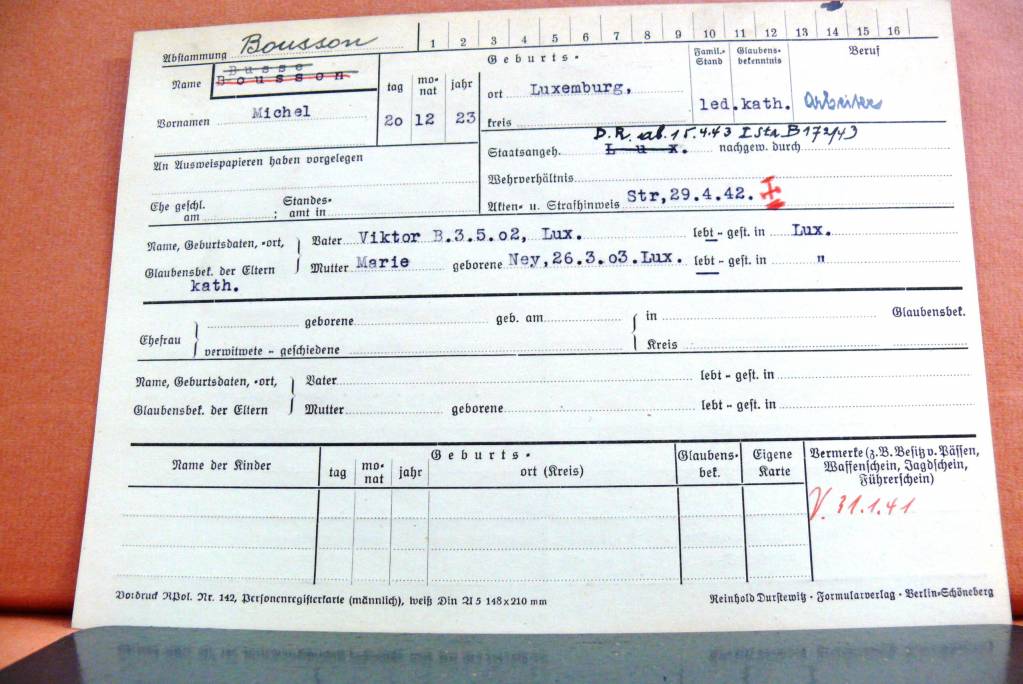 Abstammung Bousson 1 2 3 4 5 6 7 8 9 10 11 12 13 14 15 16
Name Busse
Bousson
tag mo- nat jahr
Geburts-
Famil.- Stand
Glaubens- bekenntnis
Beruf
ort Luxemburg,
led. kath. Arbeiter
Vornamen Michel 2o 12 23
kreis
D.R. ab. 15.4.43 I Str. B 172/43
Staatsangeh. Lux. nachgew. durch
An Ausweispapieren haben vorgelegen
Wehrverhältnis
Ehe geschl. am ; Standes- amt in
Akten- u. Strafhinweis Str,29.4.42.
Name, Geburtsdaten, -ort, Vater Viktor B.3.5.o2, Lux. lebt - gest. in Lux.
Glaubensbek. der Eltern Mutter Marie geborene Ney,26.3.o3.Lux. lebt - gest. in "
kath.
Ehefrau
geborene geb. am in Glaubensbek.
verwitwete - geschiedene Kreis
Name, Geburtsdaten, -ort, Vater lebt - gest. in
Glaubensbek. der Eltern Mutter geborene lebt - gest. in
Name der Kinder
Geburts-
tag mo- nat jahr ort (Kreis)
Glaubens- bek.
Eigene Karte
Vermerke (z.B. Besitz v. Pässen,
Waffenschein, Jagdschein,
Führerschein)
V. 31.1.41
Vordruck RPol. Nr. 142, Personenregisterkarte (männlich), weiß Din A 5 148x210 mm
Reinhold Durstewitz · Formularverlag · Berlin-Schöneberg